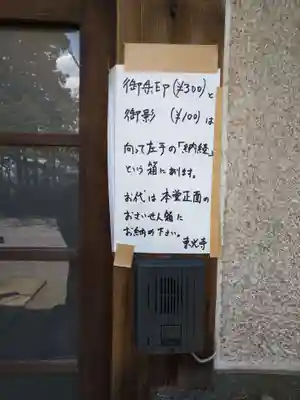 御朱印(¥300)と
御影 (¥100)は
向って左手の「納経」
という箱にあります。
お代は本堂正面の
おさいせん箱に
お納め下さい。
東光寺